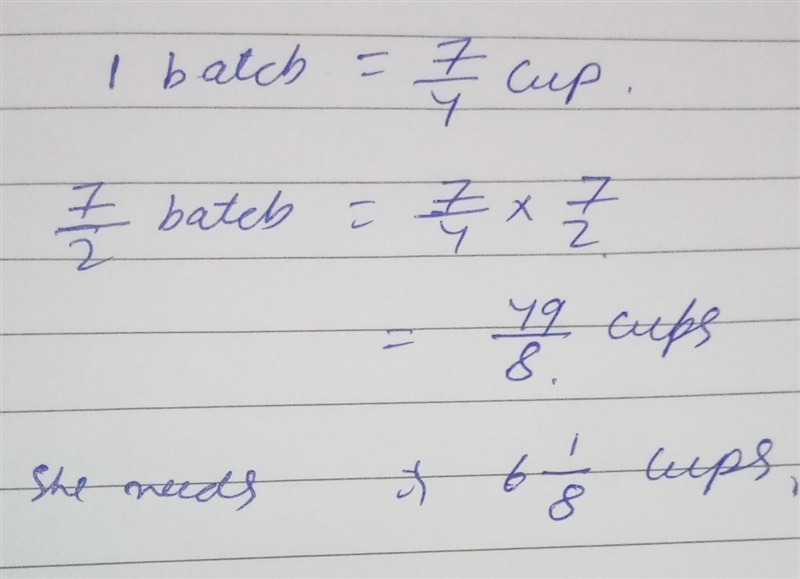 1 batch = 7/4 cup.
7/2 batch = 7/4 × 7/2
= 49/8 cups
She needs 6 1/8 cups,